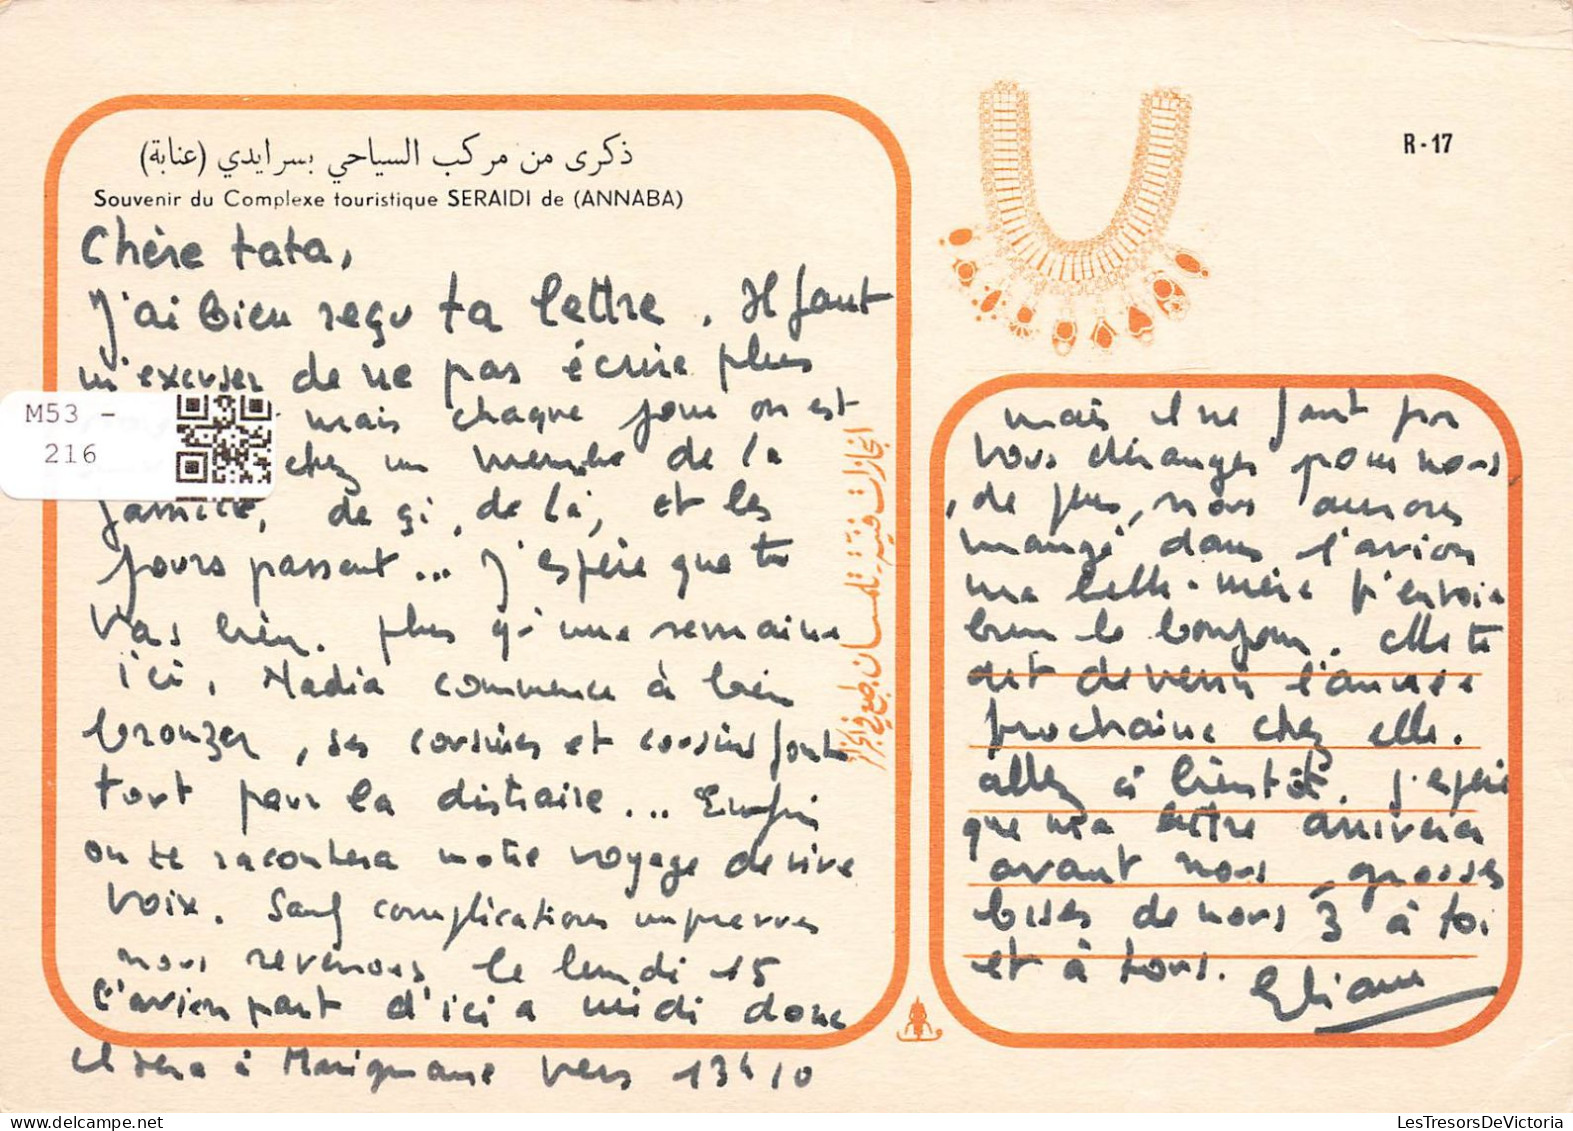 ذكرى من مركب السياحي بسرايدي (عنابة)
Souvenir du Complexe touristique SERAIDI de (ANNABA)
Chère tata,
J'ai bien reçu ta lettre. Il faut
m'excuser de ne pas écrire plus
mais chaque jour on est
chez un membre de la
famille, de çi, de là, et les
jours passent... J'espère que tu
vas bien. Plus qu'une semaine
ici, Nadia commence à bien
bronzer, ses cousines et cousins font
tout pour la distraire... Enfin
on te racontera notre voyage de vive
voix. Sauf complications imprevues
nous revenons le lundi 15
l'avion part d'ici a midi donc
il sera à Marignane vers 13h10
انجازات فنية - تلمسان
R-17
mais il ne faut pas
vous déranger pour nous,
de plus, nous aurons
mangé dans l'avion
ma belle-mère t'envoie
bien le bonjour. Elle te
dit de venir l'année
prochaine chez elle.
Allez à bientôt. J'espère
que ma lettre arrivera
avant nous, grosses
bises de nous 3 à toi
et à tous. Eliane
M53 -
216
LesTresorsDeVictoria